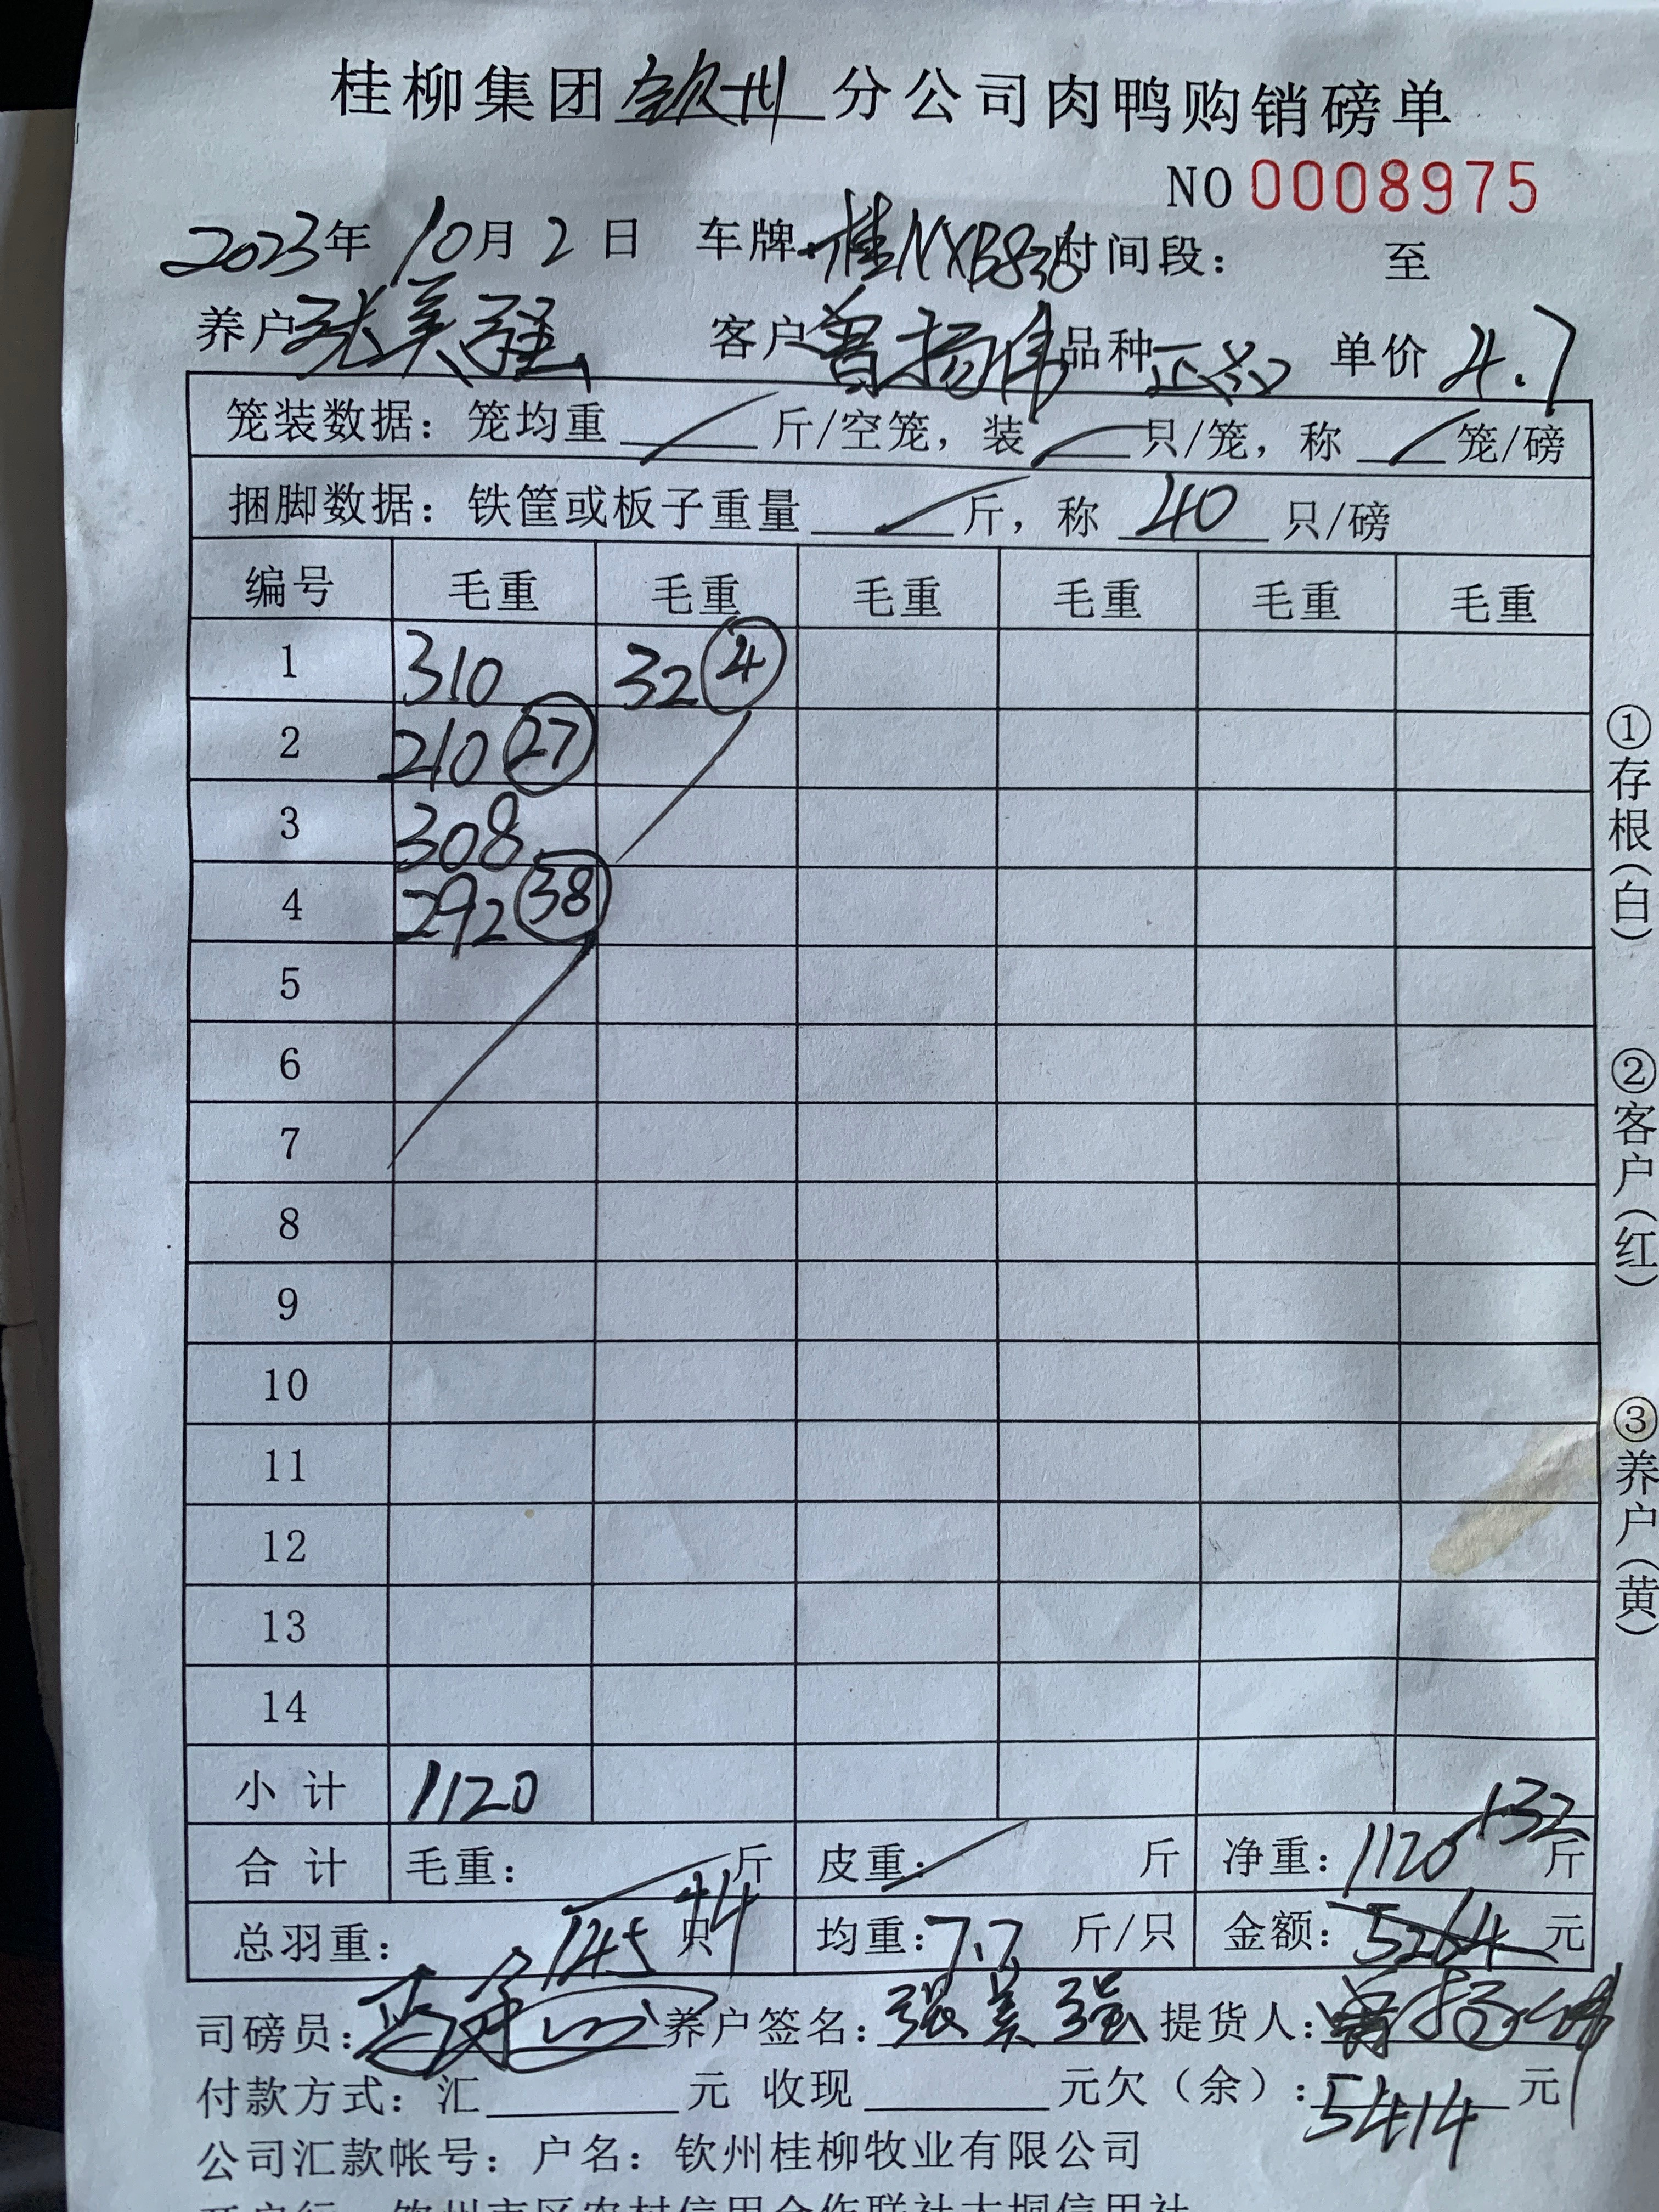 桂柳集团钦州分公司肉鸭购销磅单
NO 0008975
2023年10月2日 车牌桂NXB838时间段: 至
养户张美强 客户曾扬伟品种 单价4.7
笼装数据:笼均重 斤/空笼,装 只/笼,称 笼/磅
捆脚数据:铁筐或板子重量 斤,称 40 只/磅
编号 毛重 毛重 毛重 毛重 毛重 毛重
1 310 32④
2 210㉗
3 308
4 292㊳
5
6
7
8
9
10
11
12
13
14
小计 1120
合计 毛重: 斤 皮重: 斤 净重:1120+32斤
总羽重:145只+4 均重:7.7斤/只 金额:5264元
司磅员: 养户签名:张美强 提货人:曾扬伟
付款方式:汇 元 收现 元欠(余):5414元
公司汇款帐号:户名:钦州桂柳牧业有限公司
开户行:钦州市区农村信用合作联社大垌信用社
①存根(白)
②客户(红)
③养户(黄)